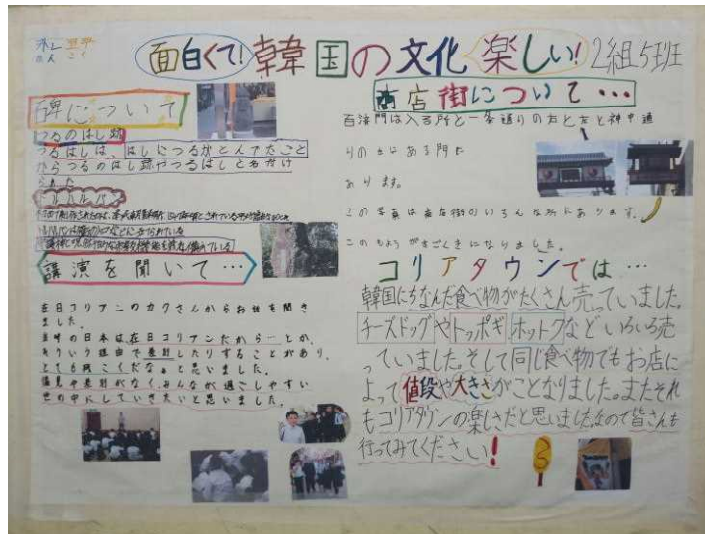 面白くて!韓国の文化楽しい!2組5班
碑について
つるのはし跡
つるはしは、はしにつるがとんできたこと
からつるのはし跡やつるはしと名付け
られた
トルハルバン
講演を聞いて…
在日コリアンの さんからお話を聞き
ました。
当時の日本は在日コリアンだから―とか、
そういう理由で差別したりすることがあり、
とても残こくだなぁと思いました。
偏見や差別がなく、みんなが過ごしやすい
世の中にしていきたいと思いました。
商店街について・・・
百済門は入る所と一条通りの右と左と神中通
りの はある門に
あります。
この写真は商店街のいろんな所にあります。
このもようがすごくきになりました。
コリアタウンでは…
韓国にちなんだ食べ物がたくさん売っていました。
チーズドッグやトッポギ ホットクなどいろいろ売
っていました。そして同じ食べ物でもお店に
よって値段や大きさがことなりました。またそれ
もコリアタウンの楽しさだと思いましたなので皆さんも
行ってみてください!